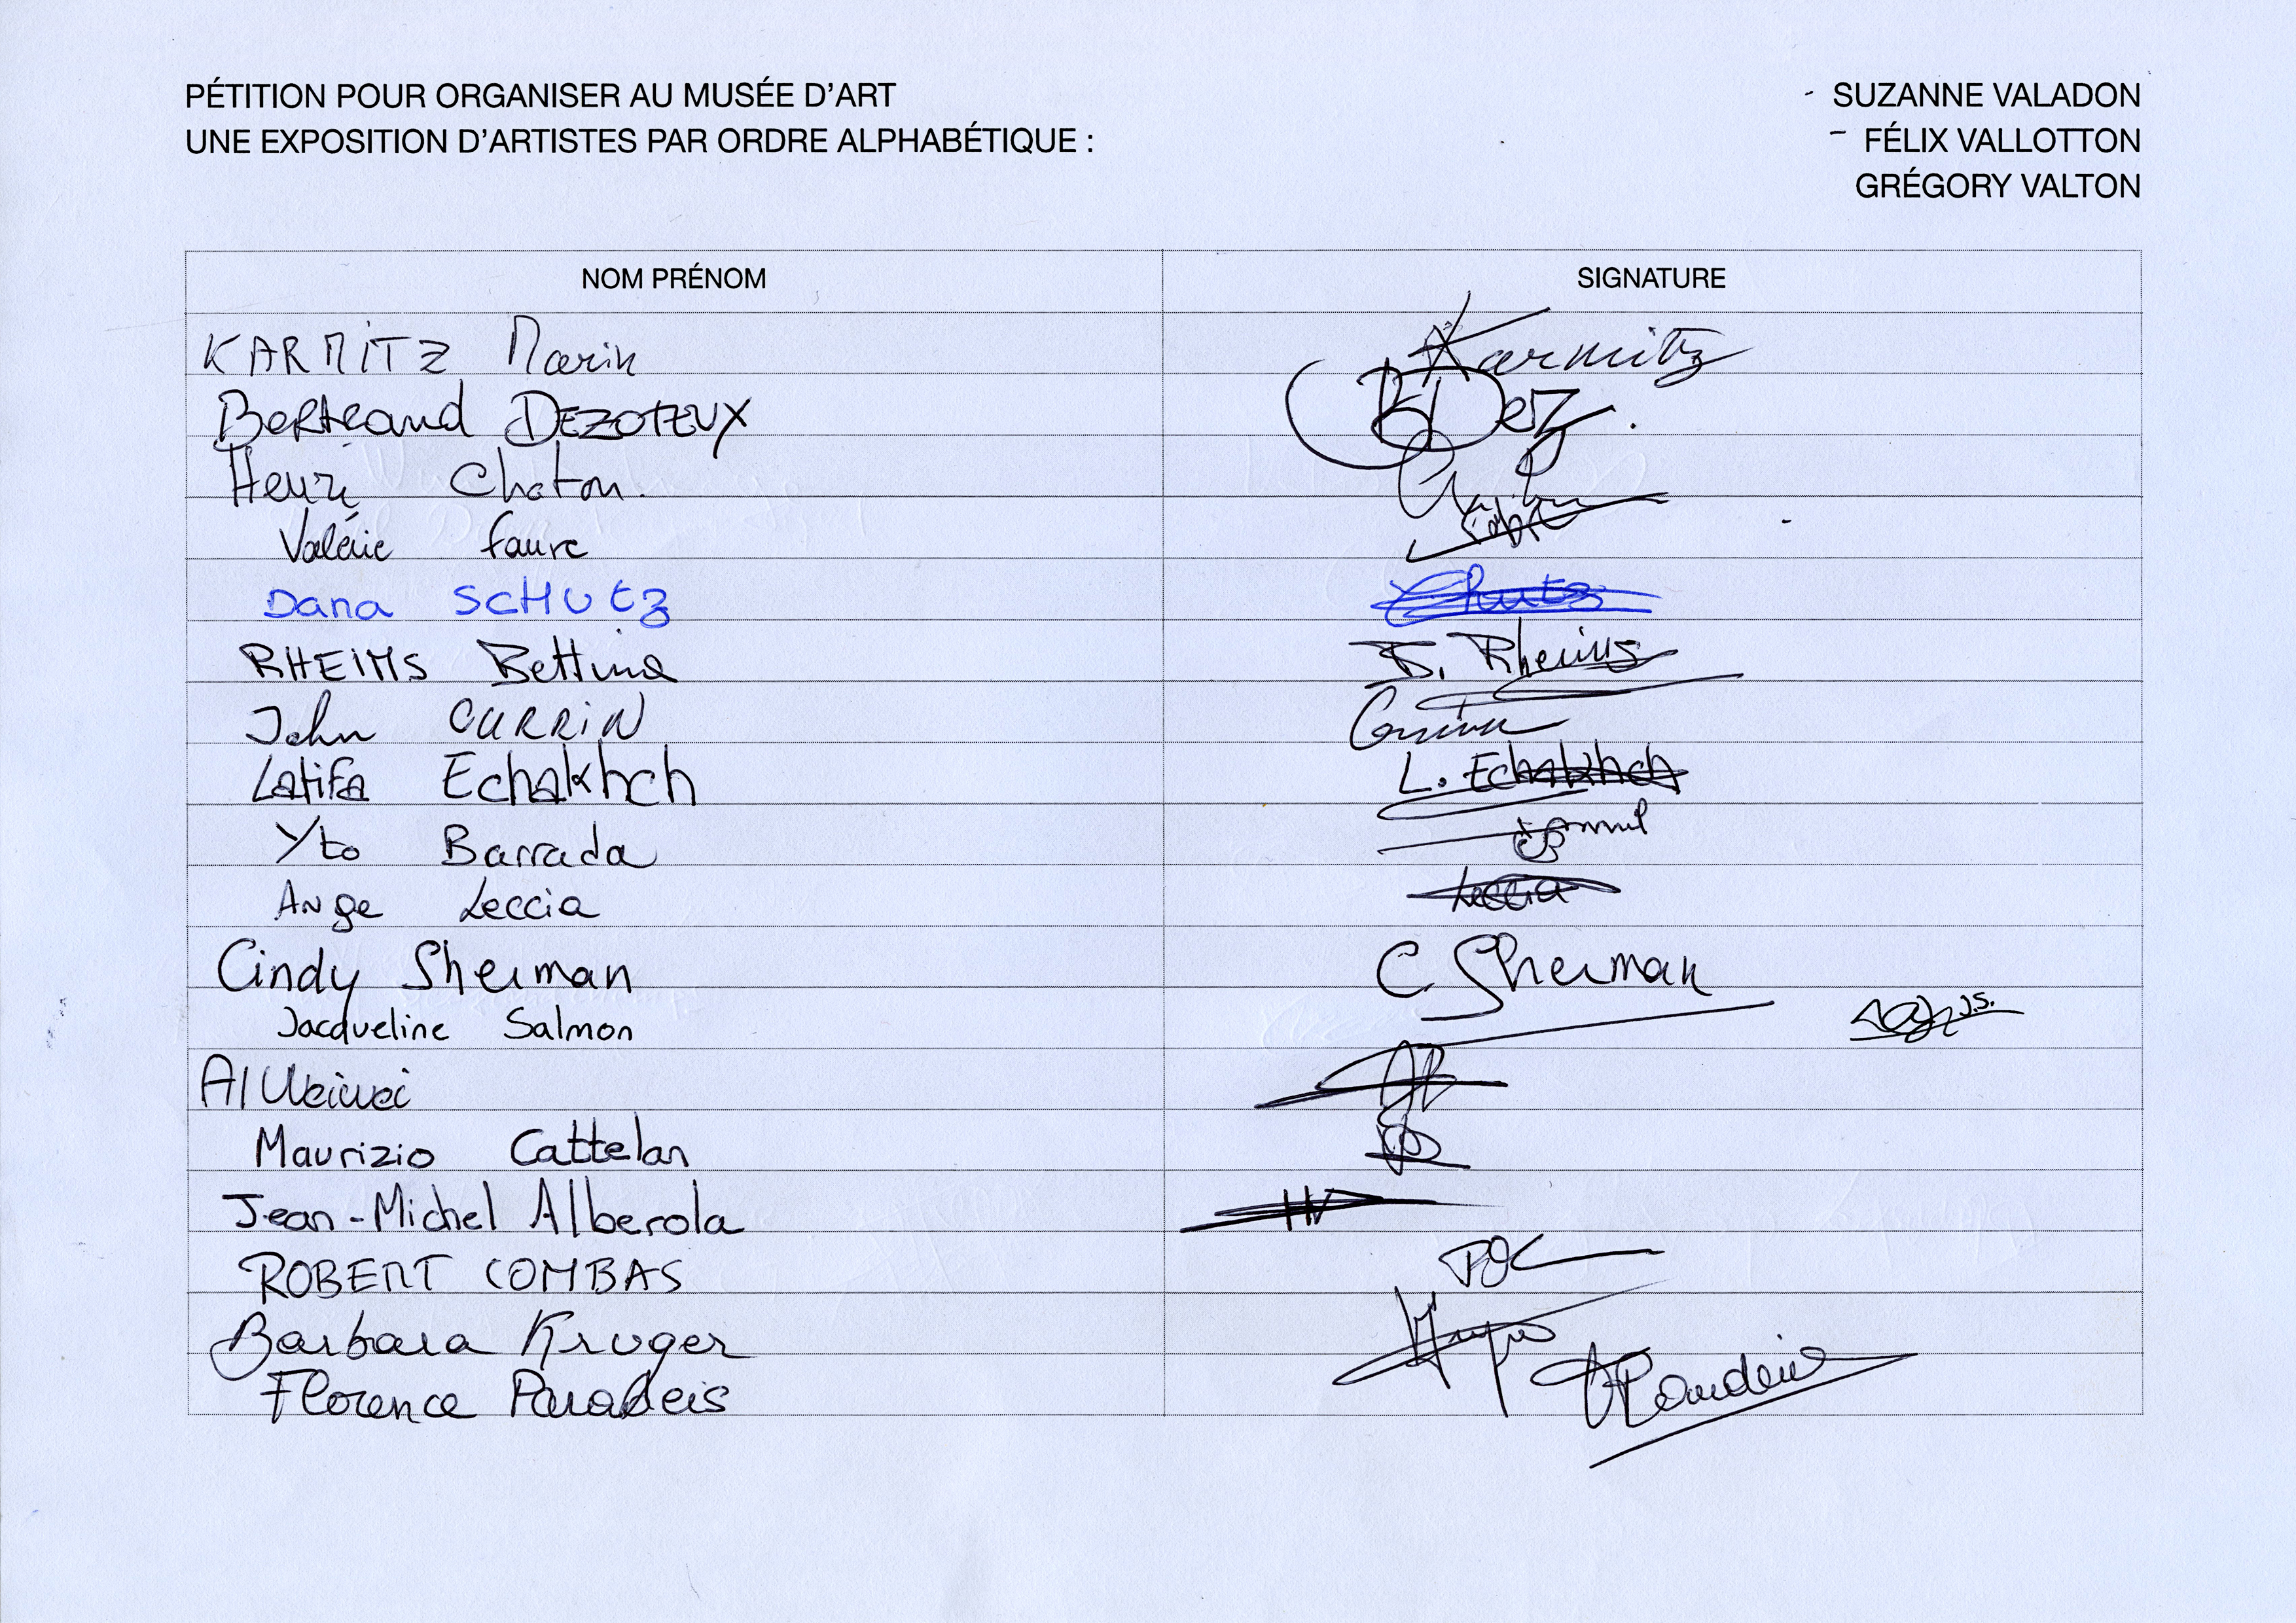 PÉTITION POUR ORGANISER AU MUSÉE D'ART
UNE EXPOSITION D'ARTISTES PAR ORDRE ALPHABÉTIQUE :
- SUZANNE VALADON
- FÉLIX VALLOTTON
GRÉGORY VALTON
NOM PRÉNOM SIGNATURE
KARMITZ Marin Karmitz
Bertrand DEZOTEUX BDez.
Henri Chaton.
Valérie Faure
Dana SCHUtz Schutz
RHEIMS Bettina B. Rheims
John CURRIN Currin
Latifa Echakhch L. Echakhch
Yto Barrada
Ange Leccia Leccia
Cindy Sherman C Sherman
Jacqueline Salmon J.S.
AI Weiwei
Maurizio Cattelan
Jean-Michel Alberola
ROBERT COMBAS
Barbara Kruger
Florence Paradeis